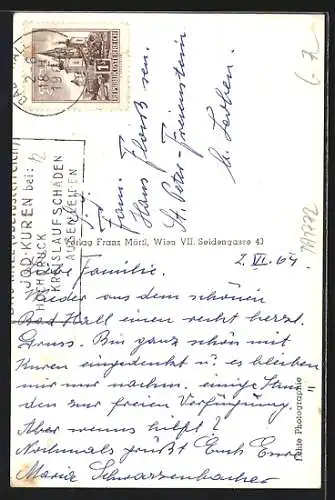 REPUBLIK ÖSTERREICH
BAD HALL
JOD-KUREN bei:
HOCHDRUCK
KREISLAUFSCHÄDEN
AUGENLEIDEN
Fam.
Hans Fleiß sen.
St. Peter-Freienstein
b. Leoben
Verlag Franz Mörtl, Wien VII. Seidengasse 43
2. VI. 64.
Liebe Familie.
Wieder aus dem schönen
Bad Hall einen recht herzl.
Gruss. Bin ganz schön mit
Kuren eingedeckt u. es bleiben
mir nur nachm. einige Stun
den zur freien Verfügung.
Aber wenns hilft?
Nochmals grüßt Euch Eure
Maria Schwarzenbacher
Echte Photographie